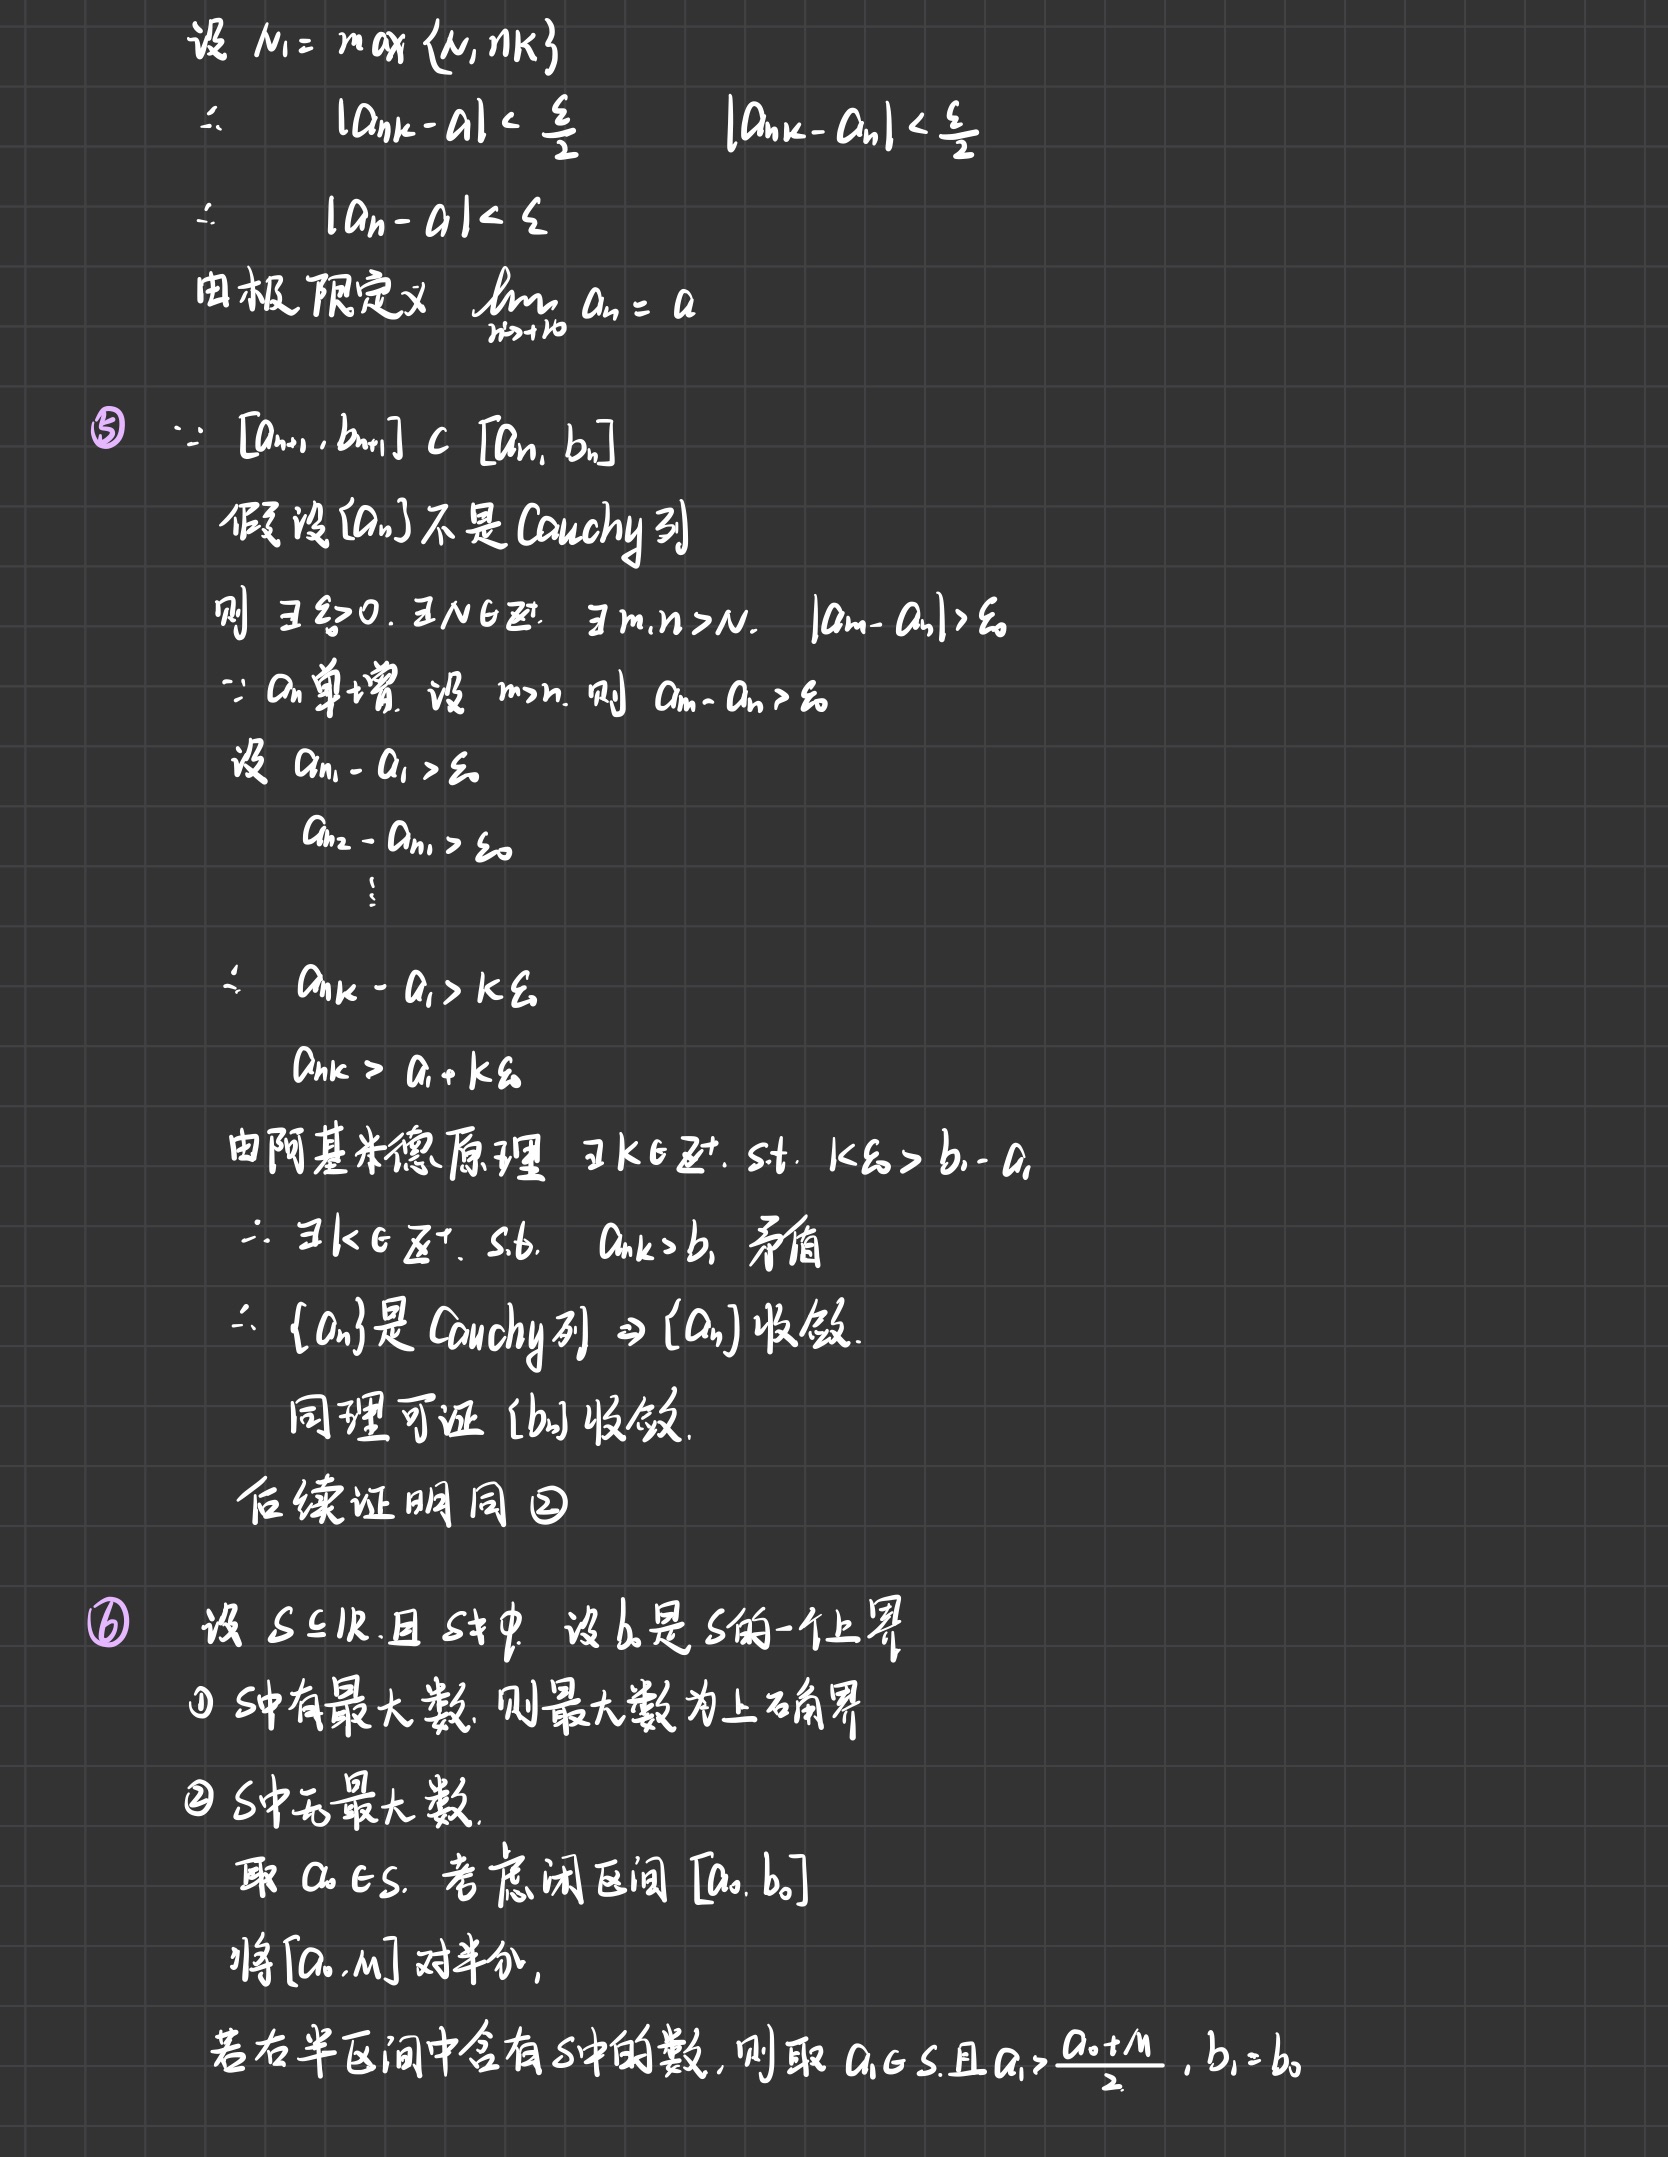 设 N₁ = max {N, nK}
∴ |a_{nk} - a| < ε/2 |a_{nk} - a_n| < ε/2
∴ |a_n - a| < ε
由极限定义 lim_{n→+∞} a_n = a
⑤ ∵ [a_{n+1}, b_{n+1}] ⊂ [a_n, b_n]
假设{a_n}不是Cauchy列
则 ∃ε₀>0. ∃N∈Z⁺. ∃m,n>N. |a_m - a_n| > ε₀
∵ a_n单增. 设 m>n. 则 a_m - a_n > ε₀
设 a_{n₁} - a₁ > ε₀
a_{n₂} - a_{n₁} > ε₀
⋮
∴ a_{nk} - a₁ > kε₀
a_{nk} > a₁ + kε₀
由阿基米德原理 ∃k∈Z⁺. s.t. kε₀ > b₁ - a₁
∴ ∃k∈Z⁺. s.t. a_{nk} > b₁ 矛盾
∴ {a_n}是Cauchy列 ⇒ {a_n}收敛.
同理可证 {b_n}收敛.
后续证明同②
⑥ 设 S⊆R.且 S≠φ. 设b₀是S的一个上界
① S中有最大数. 则最大数为上确界
② S中无最大数.
取 a₀∈S. 考虑闭区间 [a₀, b₀]
将[a₀, M]对半分,
若右半区间中含有S中的数, 则取 a₁∈S.且a₁ > (a₀+M)/2, b₁=b₀